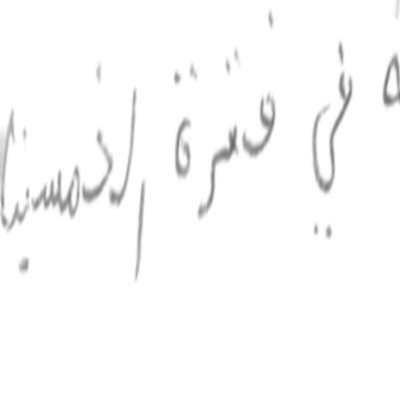 في فترة الخمسينا